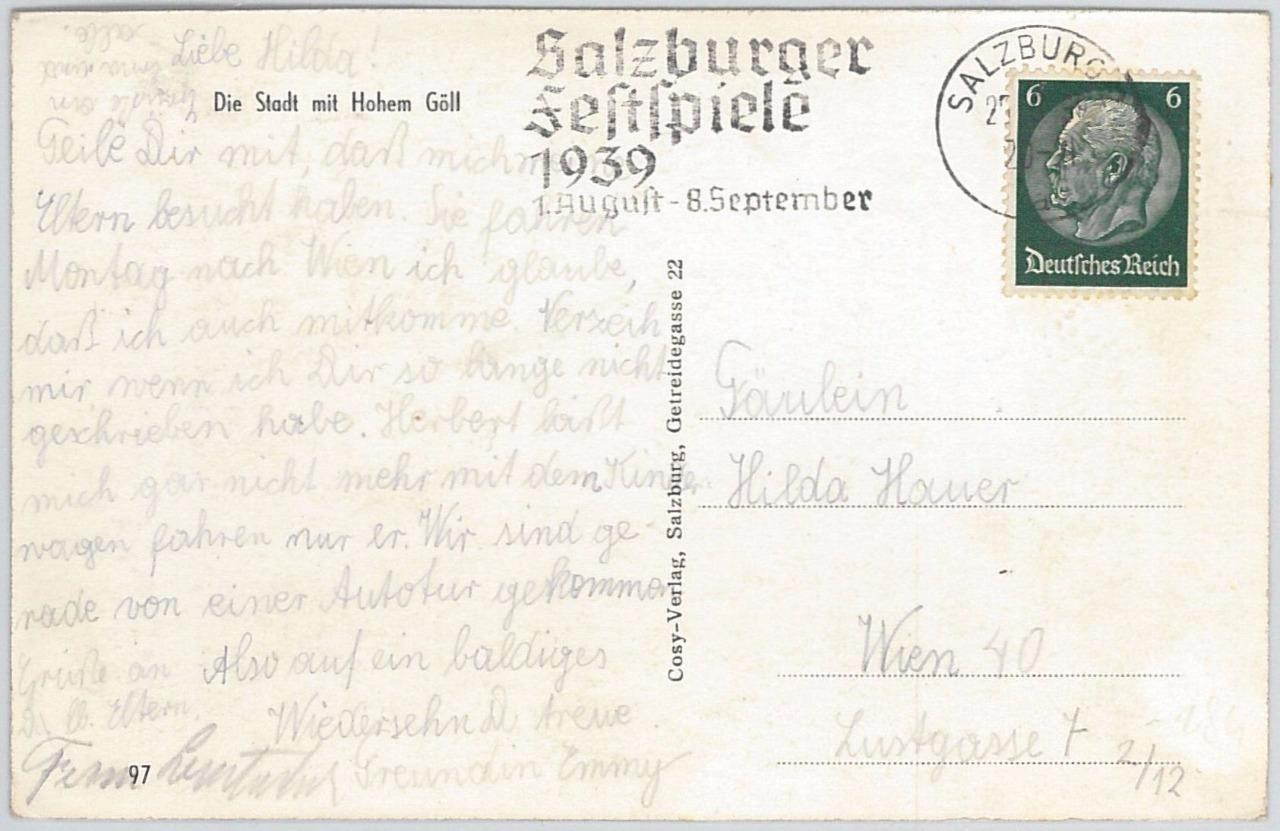 Liebe Hilda!
Die Stadt mit Hohem Göll
Teile Dir mit, daß mich m
Eltern besucht haben. Sie fahren
Montag nach Wien ich glaube,
daß ich auch mitkomme. Verzeih
mir wenn ich Dir so lange nicht
geschrieben habe. Herbert läßt
mich gar nicht mehr mit dem Kinder
wagen fahren nur er. Wir sind ge-
rade von einer Autotur gekommen
Grüße an Also auf ein baldiges
D. lb. Eltern. Wiedersehn D. treue
Freundin Emmy
97
Salzburger
Festspiele
1939
1. August - 8. September
SALZBURG
6 6
Deutsches Reich
Cosy-Verlag, Salzburg, Getreidegasse 22
Fräulein
Hilda Hauer
Wien 40
Lustgasse 7 2/12